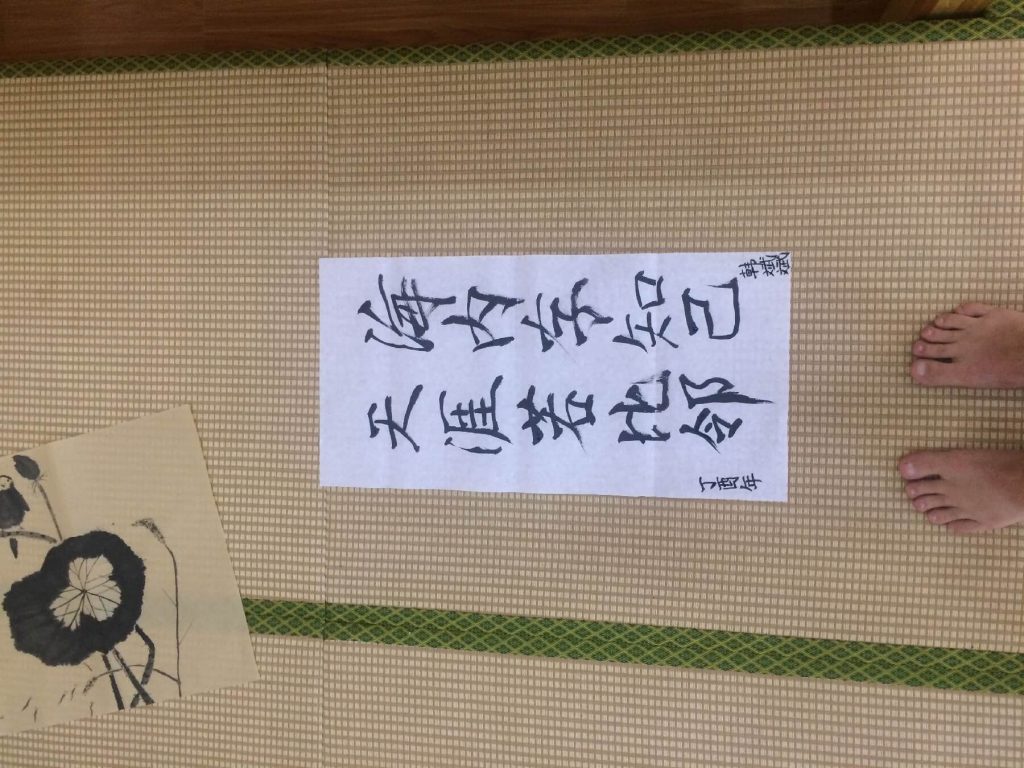 海内存知己
天涯若比邻
丁酉年
韓